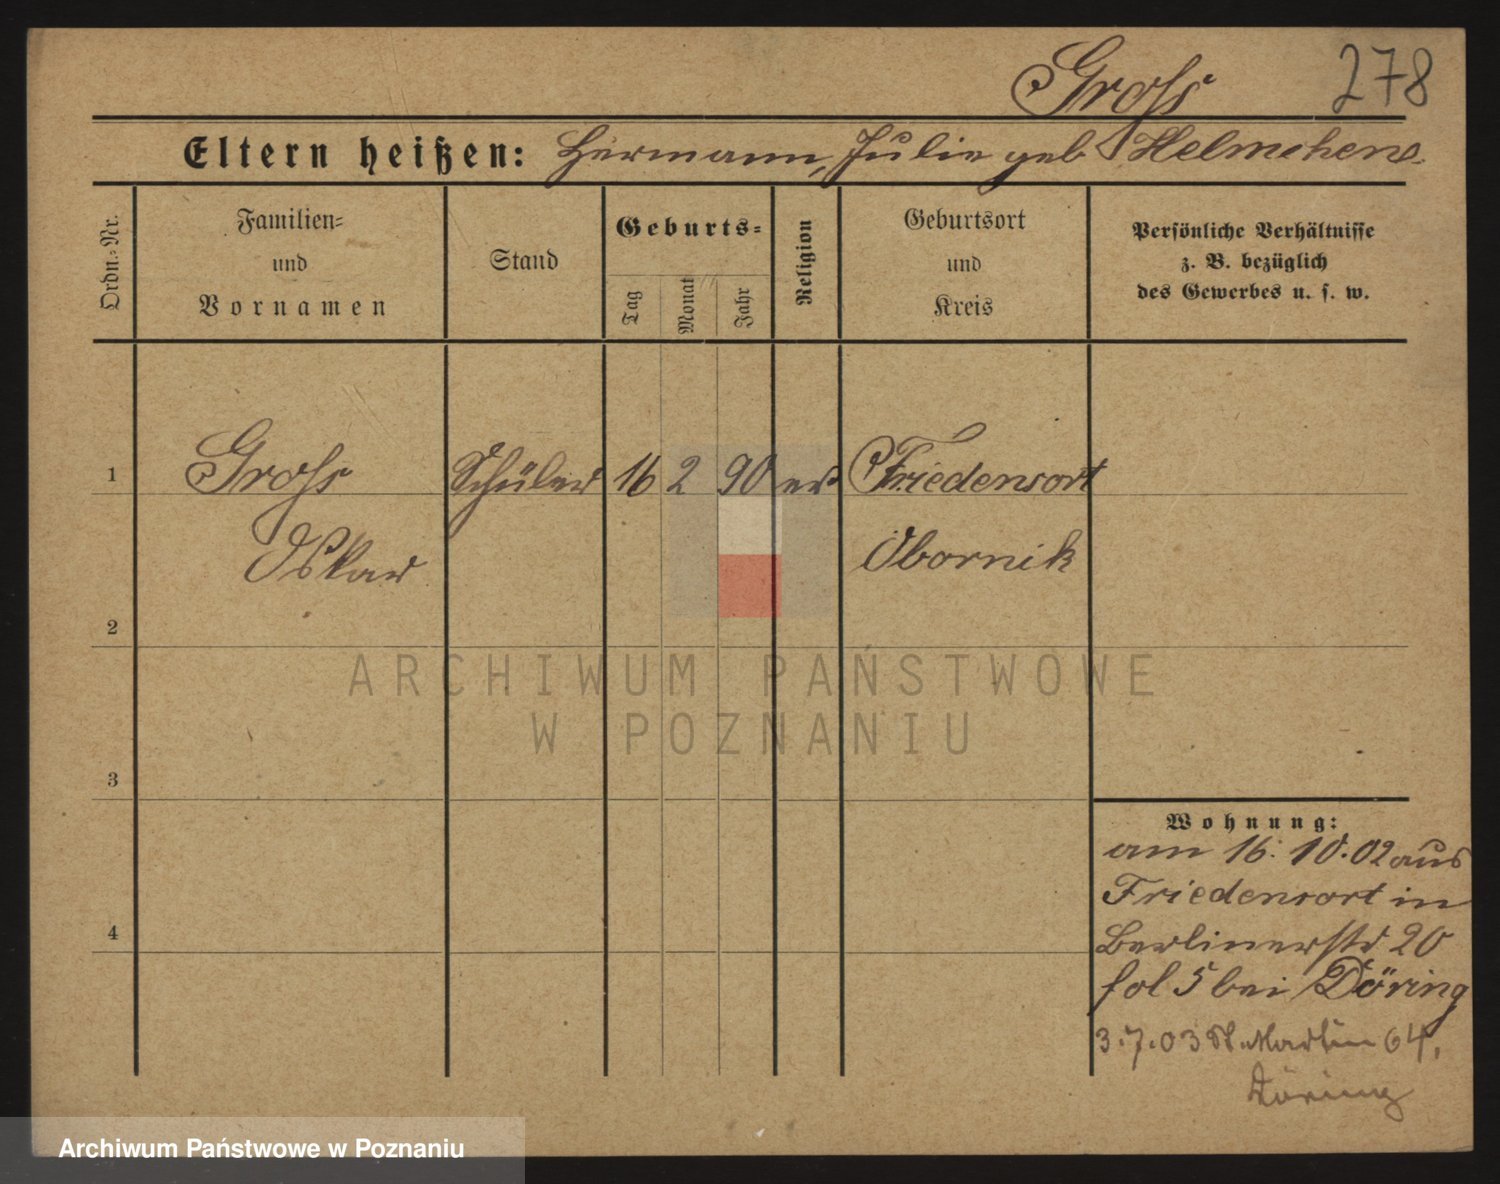 Groſs 278
Eltern heißen: Hermann, Julie geb Helmchen
Ordn.-Nr.
Familien-
und
Vornamen
Stand
Geburts-
Tag
Monat
Jahr
Religion
Geburtsort
und
Kreis
Persönliche Verhältnisse
z. B. bezüglich
des Gewerbes u. s. w.
1 Groſs Schüler 16 2 90 ev Friedensort
Oskar Obornik
2
ARCHIWUM PAŃSTWOWE
W POZNANIU
3
Wohnung:
am 16. 10. 02 aus
Friedensort in
4
Berlinerstr 20
fol 5 bei Döring
3.7.03 St. Martin 64,
Döring
Archiwum Państwowe w Poznaniu